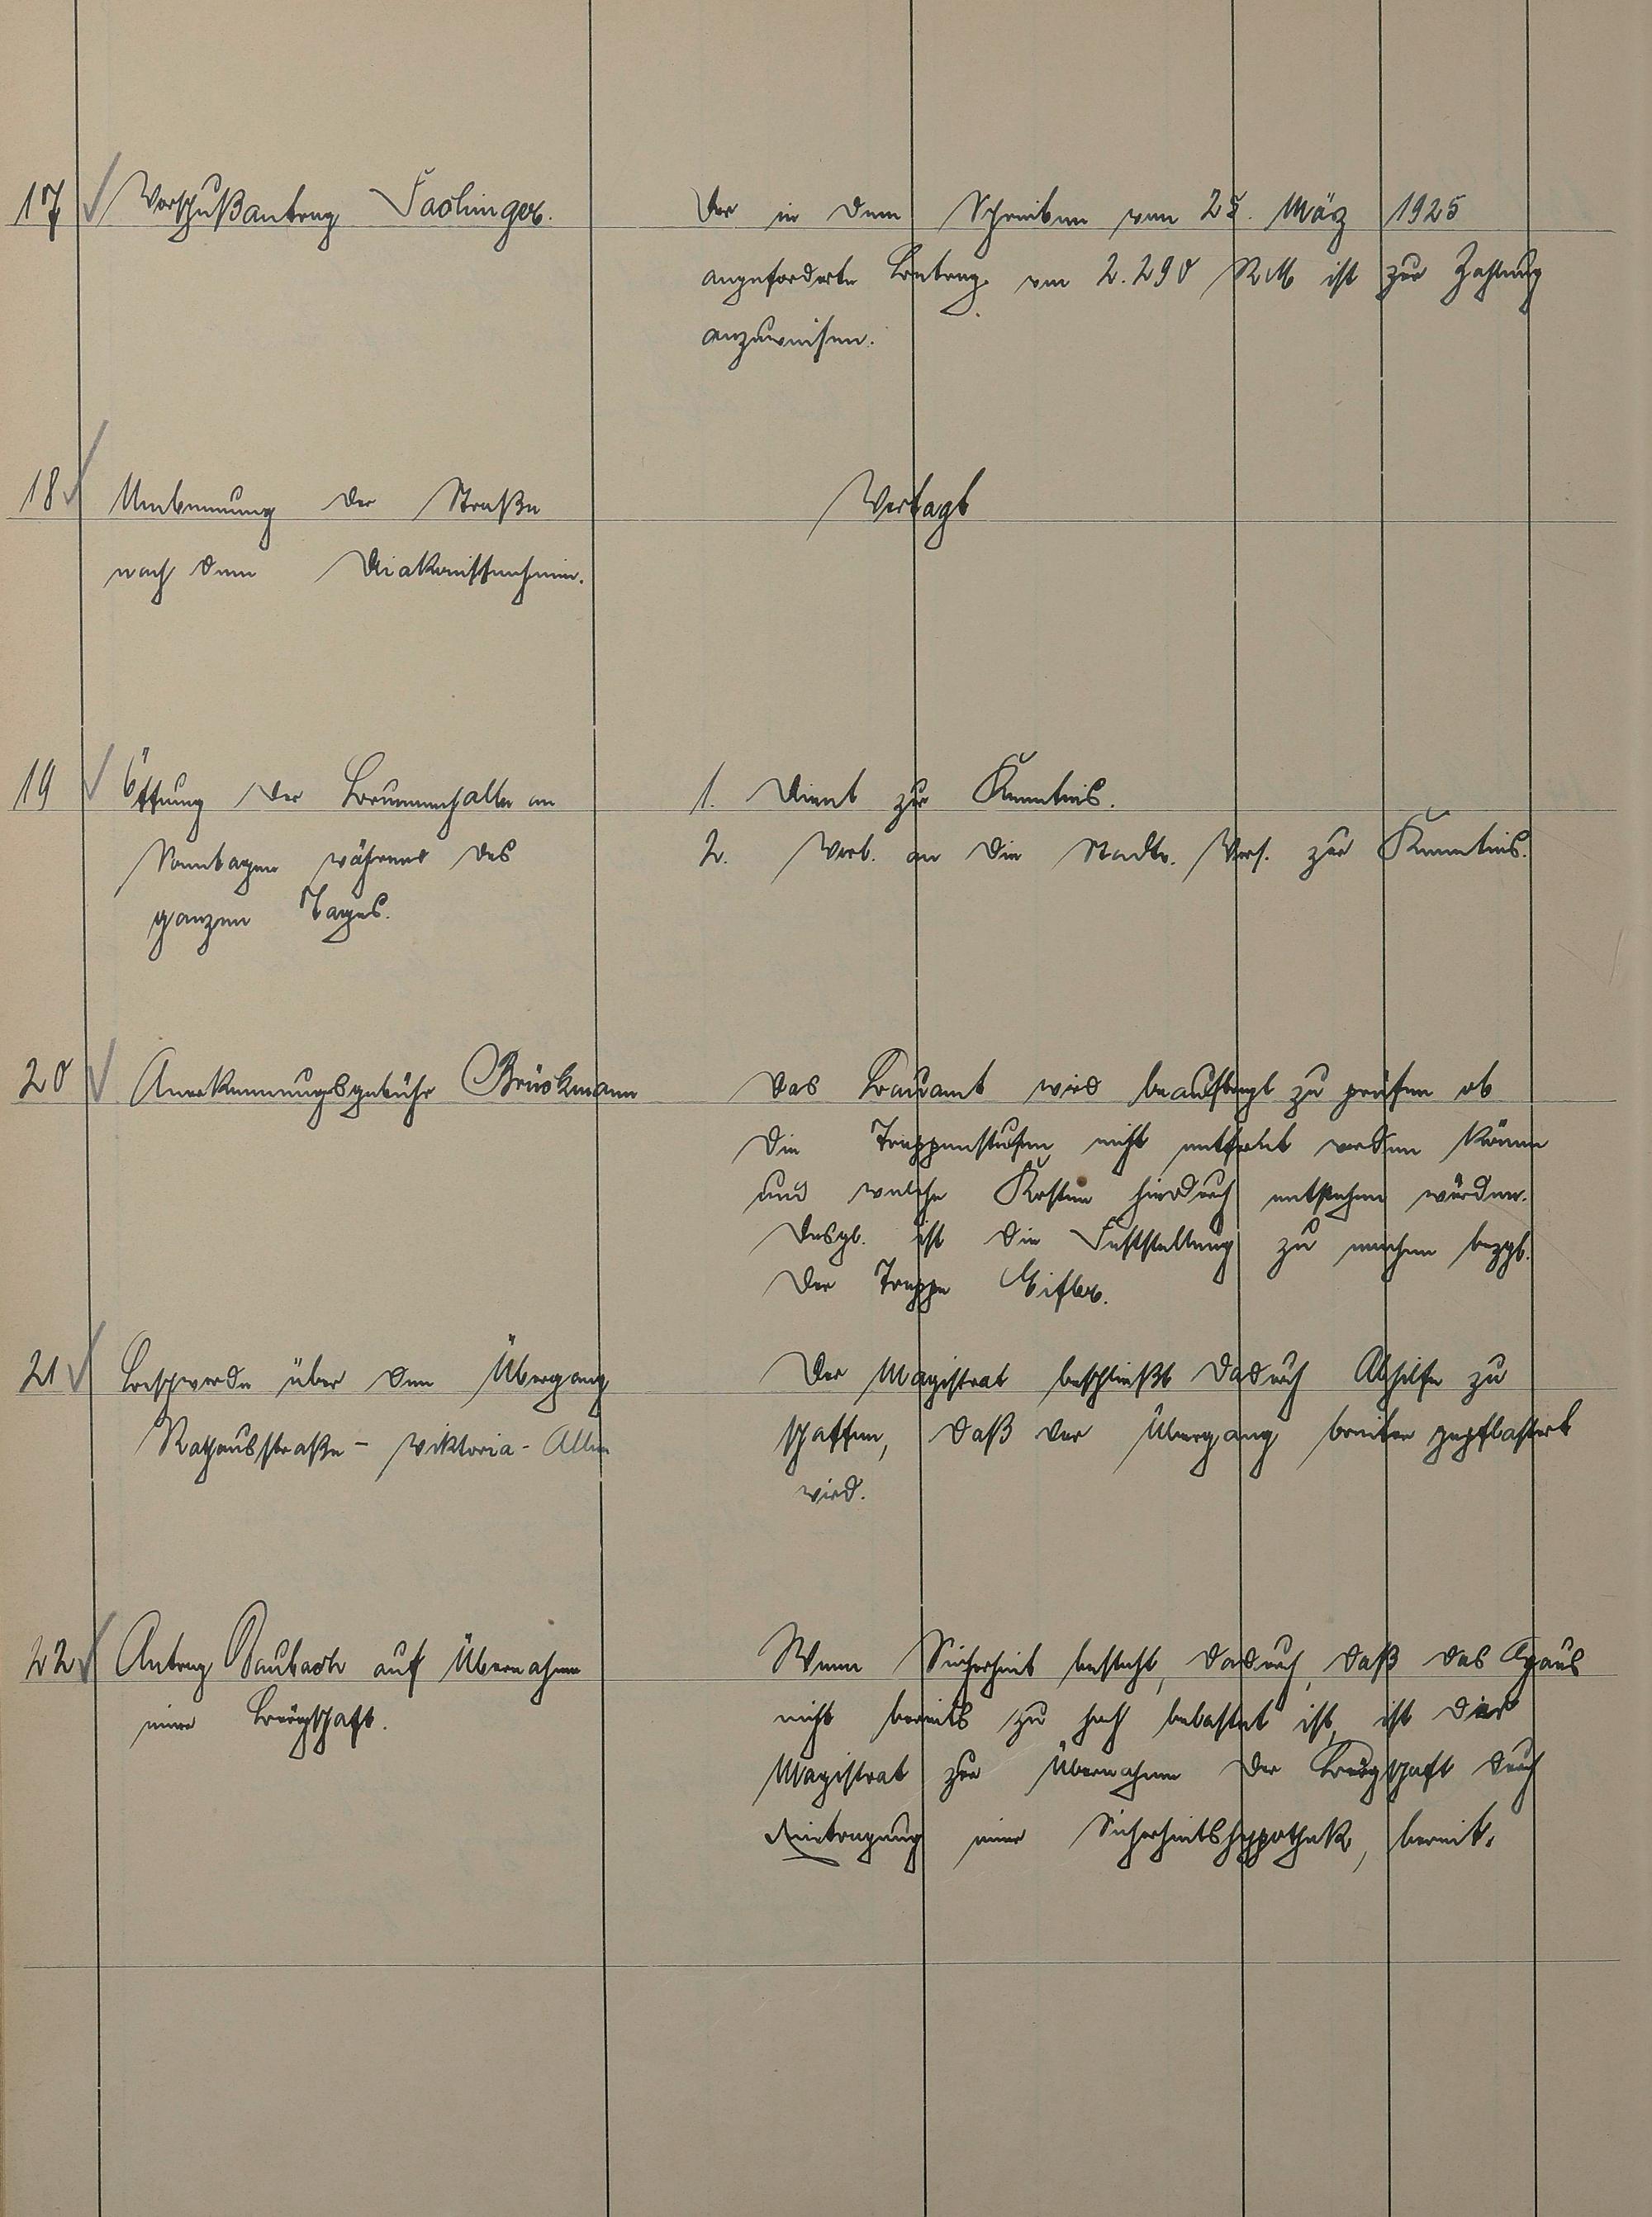 17 Vorschußantrag Fachinger.
Der in dem Schreiben vom 25. März 1925
angeforderte Betrag von 2.290 RM ist zur Zahlung
anzuweisen.
18 Umbenennung der Straße
nach dem Diakonissenheim.
Vertagt
19 Öffnung der Brunnenhalle an
Sonntagen während des
ganzen Tages.
1. Dient zur Kenntnis.
2. Vorl. an die Stadtv. Vers. zur Kenntnis.
20 Anerkennungsgebühr Brückmann
Das Bauamt wird beauftragt zu prüfen ob
die Treppenstufen nicht entfernt werden können
und welche Kosten hierdurch entstehen würden.
Desgl. ist die Feststellung zu machen bezgl.
der Treppe
21 Beschwerde über den Übergang
Rathausstraße - Viktoria-Allee
Der Magistrat beschließt dadurch Abhilfe zu
schaffen, daß der Übergang breiter gepflastert
wird.
22 Antrag Baubach auf Übernahme
einer Bürgschaft.
Wenn Sicherheit besteht, dadurch, daß das Haus
nicht bereits zu hoch belastet ist, ist der
Magistrat zur Übernahme der Bürgschaft durch
Eintragung einer Sicherheitshypothek, bereit.